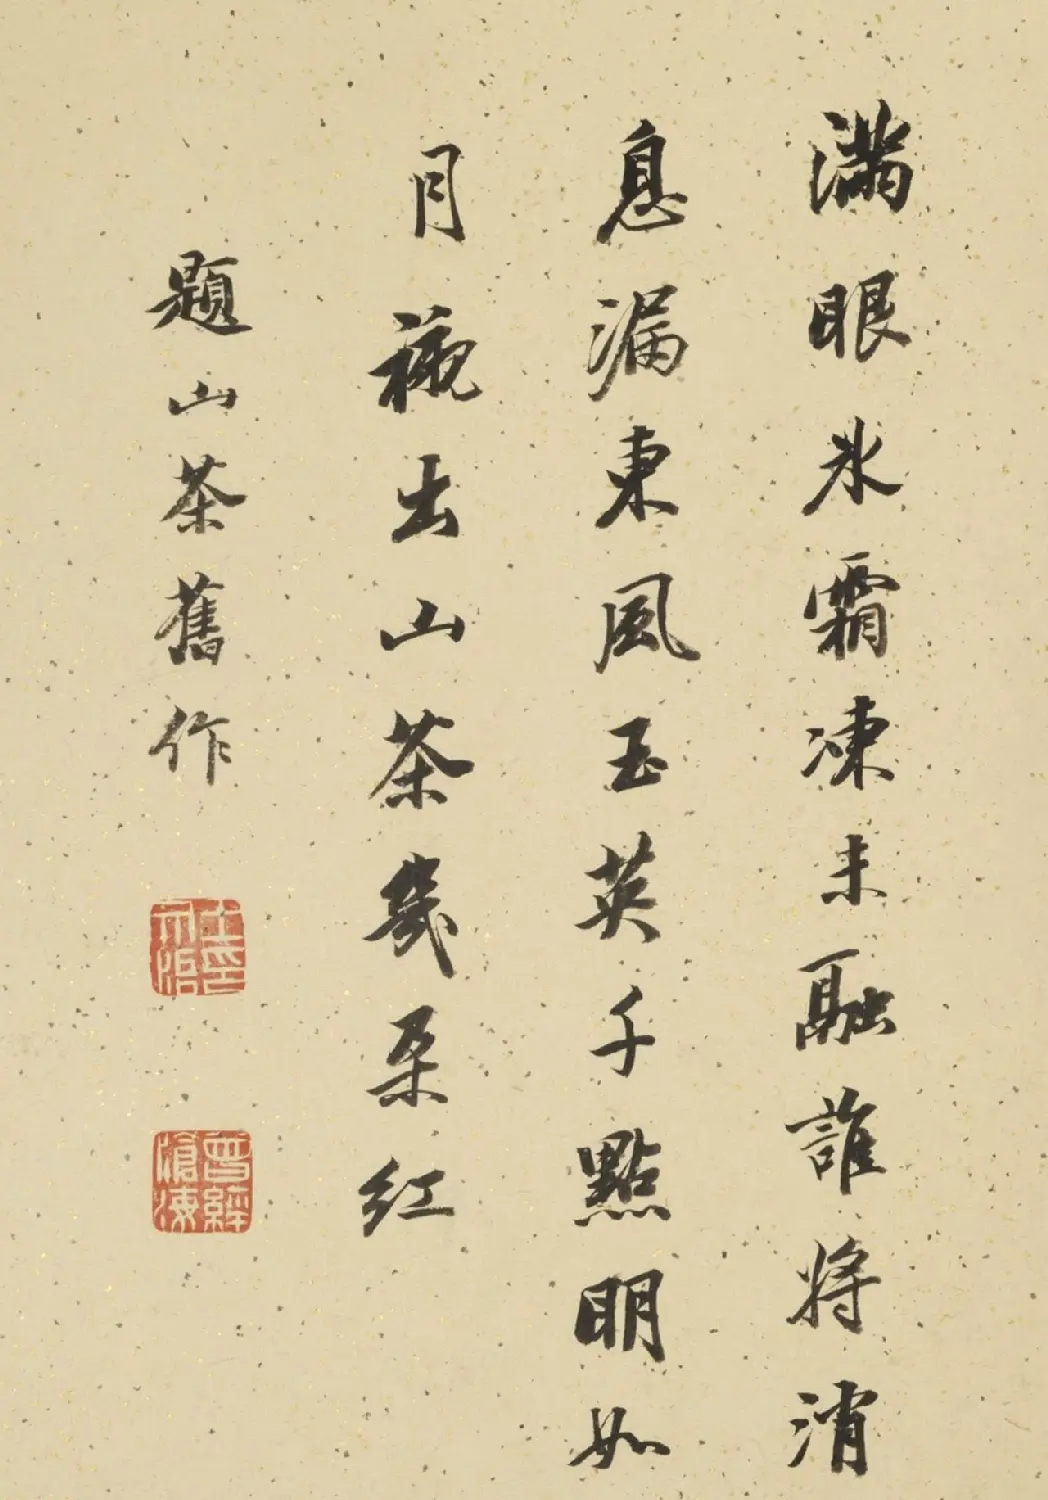 滿眼氷霜凍未融誰將消
息漏東風玉英千點明如
月襯出山茶幾朶紅
題山茶舊作
曾經滄海